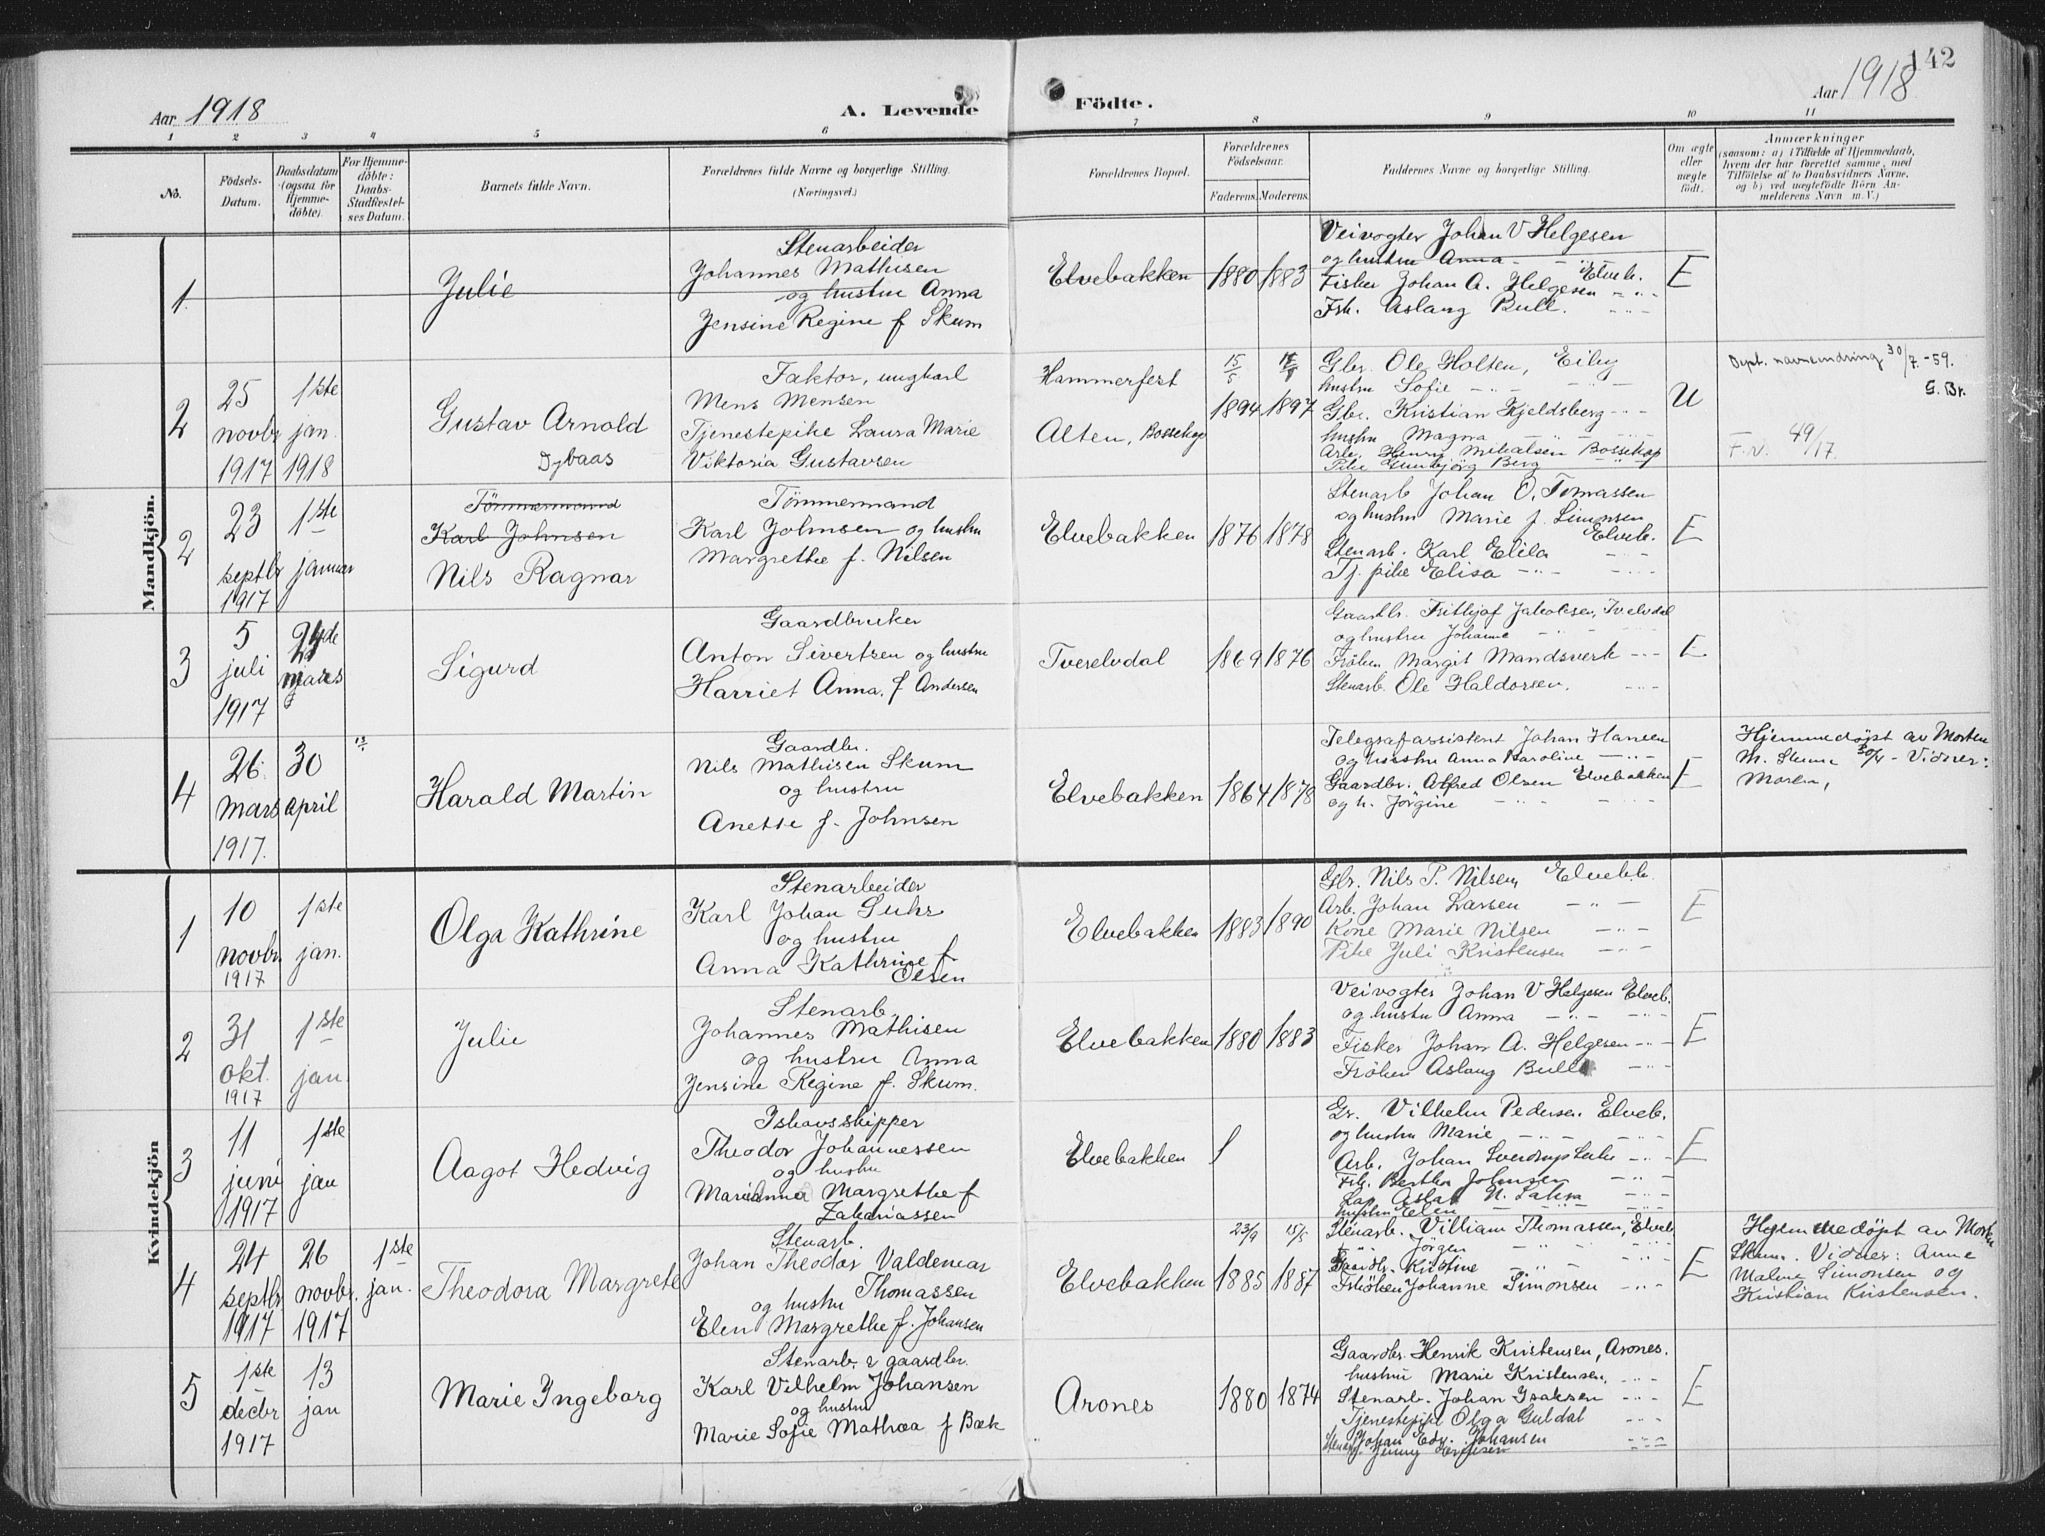 142
Aar 1918
A. Levende
Födte.
Aar 1918
1 2 3 4 5 6 7 8 9 10 11
No.
Födsels-Datum.
Daabsdatum (ogsaa for Hjemme-döbte).
For Hjemme-döbte: Daabs-Stadfæstel-ses Datum.
Barnets fulde Navn.
Forældrenes fulde Navne og borgerlige Stilling.
(Næringsvei.)
Forældrenes Bopæl.
Forældrenes Födselsaar.
Faderens. Moderens.
Faddernes Navne og borgerlige Stilling.
Om ægte eller uægte födt.
Anmærkninger
(saasom: a) i Tilfælde af Hjemmedaab, hvem der har forrettet samme, med Tilföielse af to Daabsvidners Navne, og b) ved uægtefödte Börn An-melderens Navn m. V.)
Mandkjön.
1
Julie
Stenarbeider
Johannes Mathisen
og hustru Anna
Jensine Regine f Skum
Elvebakken 1880 1883
Veivogter Johan V Helgesen
og hustru Anna - " -
Fisker Johan A. Helgesen Elveb.
Frk. Aslaug Bull. - " -
E
2
25 novbr 1917
1ste jan. 1918
Gustav Arnold
Dybaas
Faktor, ungkarl
Mens Mensen
Tjenestepike Laura Marie
Viktoria Gustavsen
Hammerfest
Alten, Bossekop
15/5 1894 1897
Gbr. Ole Holten, Eiby
hustru Sofie - " -
Gbr. Kristian Kjeldsberg - " -
hustru Magna - " -
Arb. Henry Mikalsen Bossekop
Pike Gunbjörg Berg - " -
U
Dept. navneendring 30/7-59.
G. Br.
F.N. 49/17.
2
23 septbr 1917
1ste januar
Tömmermand
Karl Johnsen
Nils Ragnar
Tömmermand
Karl Johnsen og hustru
Margrethe f. Nilsen
Elvebakken 1876 1878
Stenarb Johan O. Tomassen
og hustru Marie f. Simonsen
Stenarb. Karl Elila Elveb.
Tj. pike Elisa - " -
E
3
5 juli 1917
24de mars
Sigurd
Gaardbruker
Anton Sivertsen og hustru
Harriet Anna, f Andersen
Tverelvdal 1869 1876
Gaardbr. Frithjof Jakobsen, Tvelvdal
og hustru Johanne - " -
Fröken Margit Mandsverk - " -
Stenarb. Ole Haldorsen. - " -
E
4
26. mars 1917.
30 april
Harald Martin
Gaardbr.
Nils Mathisen Skum
og hustru
Anette f. Johnsen
Elvebakken 1864 1878
Telegrafassistent Johan Hansen
og hustru Anna Karoline - " -
Gaardbr. Alfred Olsen Elvebakken
og h. Jörgine - " -
E
Hjemmedøpt av Morten
M. Skum 30/4 - Vidner:
Moren,
Kvindekjön
1
10 novbr. 1917
1ste jan.
Olga Kathrine
Stenarbeider
Karl Johan Suhr
og hustru
Anna Kathrine f
Olsen
Elvebakken 1883 1890
Gbr. Nils P. Nilsen, Elvebk.
Arb. Johan Larsen - " -
Kone Marie Nilsen - " -
Pike Juli Kristensen - " -
E
2
31 okt. 1917
1ste jan.
Julie
Stenarb.
Johannes Mathisen
og hustru Anna
Jensine Regine f. Skum.
Elvebakken 1880 1883
Veivogter Johan V Helgesen Elveb.
og hustru Anna - " -
Fisker Johan A. Helgesen - " -
Fröken Aslaug Bull - " -
E
3
11 juni 1917
1ste jan
Aagot Hedvig
Ishavsskipper
Theodor Johannessen
og hustru
Marianna Margrethe f
Zakariassen
Elvebakken
Gr. Vilhelm Pedersen Elveb.
og hustru Marie - " -
Arb. Johan Sverdrup - " -
Frk. Bertha Johnsen - " -
Lap Aslak N. - " -
hustru Elen - " -
E
4
24 septbr 1917
26 novbr. 1917
1ste jan.
Theodora Margrete
Stenarb.
Johan Theodor Valdemar
Thomassen
og hustru
Elen Margrethe f. Johansen
Elvebakken 23/9 1885 15/5 1887
Stenarb. Villiam Thomassen, Elveb
Jörgen - " -
Gaardbr. Kristine - " -
Fröken Johanne Simonsen - " -
E
Hjemmedøpt av Morten
Skum. Vidner: Anne
Malene Simonsen og
Kristian Kristensen.
5
1ste decbr 1917
13 jan
Marie Ingeborg
Stenarb. & gaardbr.
Karl Vilhelm Johansen
og hustru
Marie Sofie Mathea f Bæk
Arones 1880 1874
Gaardbr. Henrik Kristensen, Arones.
hustru Marie Kristensen, - " -
Stenarb. Johan Isaksen - " -
Tjenestepike Olga Guldal - " -
Stenarb Johan Edv. Johansen - " -
E